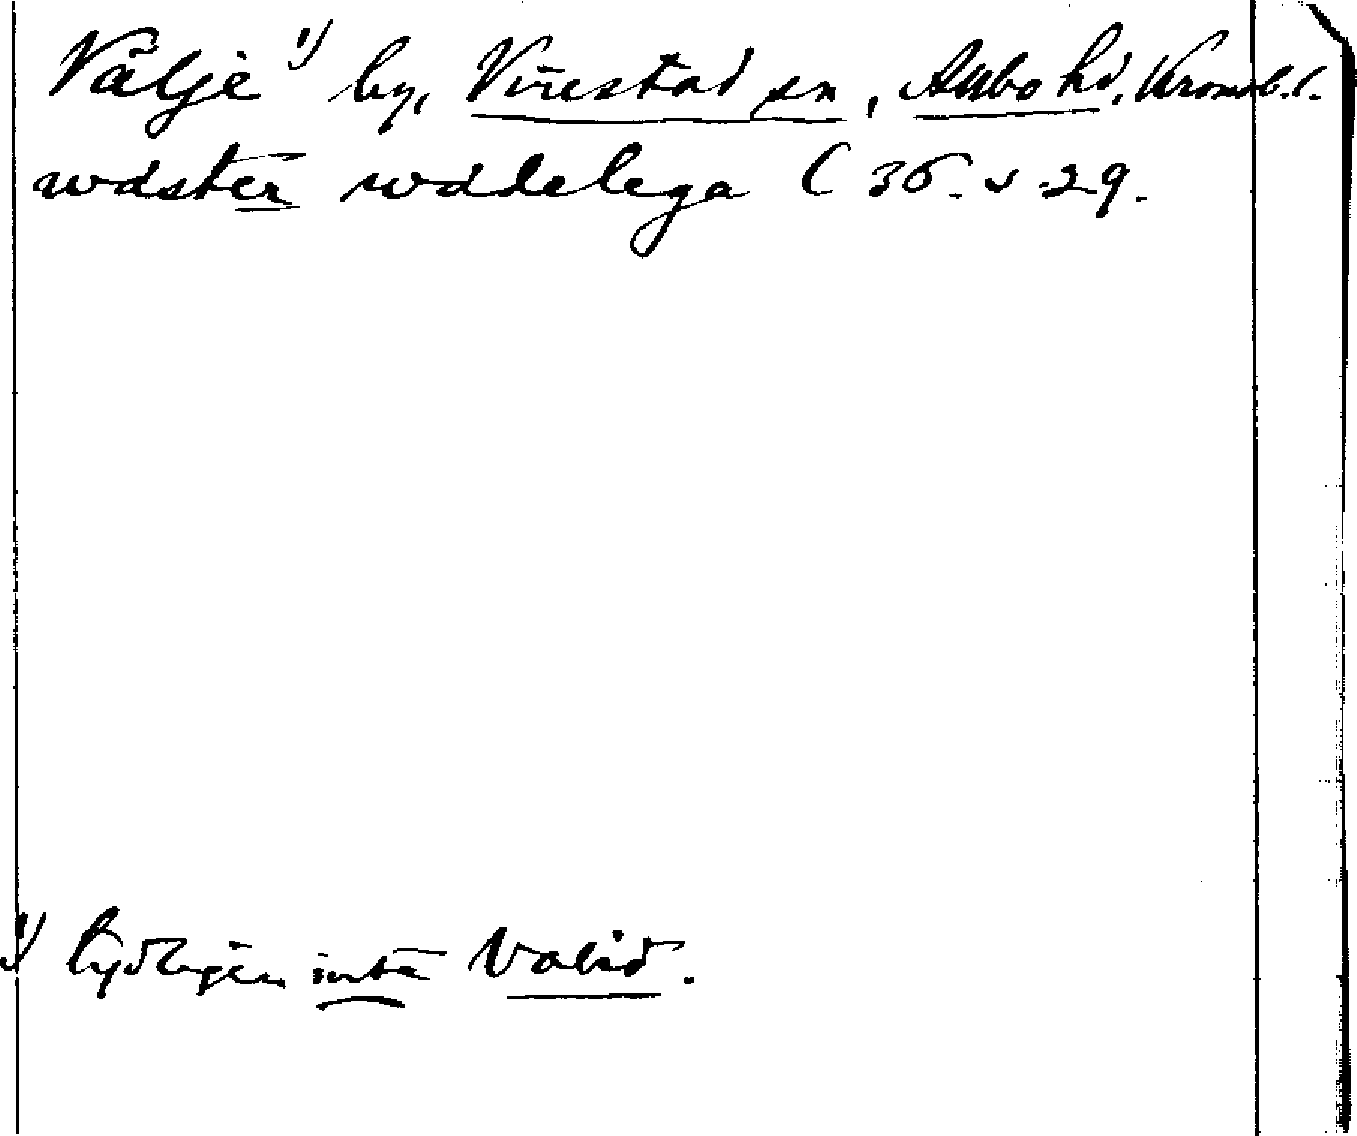 Välje 1) by, Virestad sn, Allbo hd, Kronob. l.
wdster wddelega C 36. v 29.
1) tydligen inte Valid.